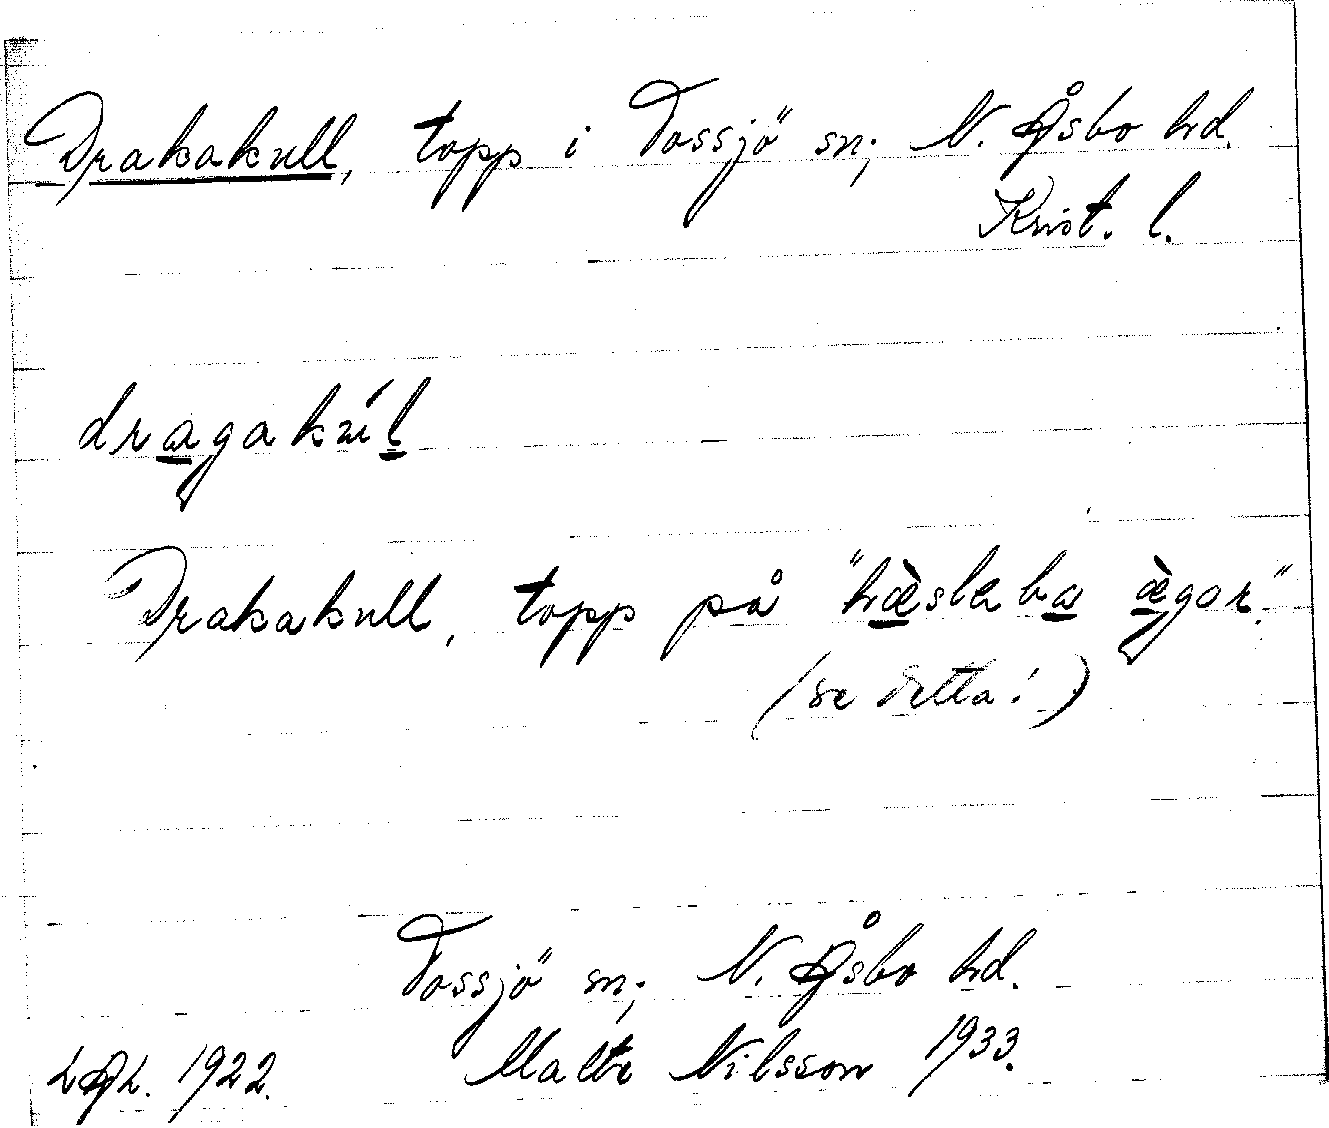 Drakakull, topp i Tossjö sn; N. Åsbo hd.
Krist. l.
dragakúl
Drakakull, topp på "hæ̀slaba æ̀gor."
(se detta!)
Tossjö sn; N. Åsbo hd.
LAL. 1922. Malte Nilsson 1933.